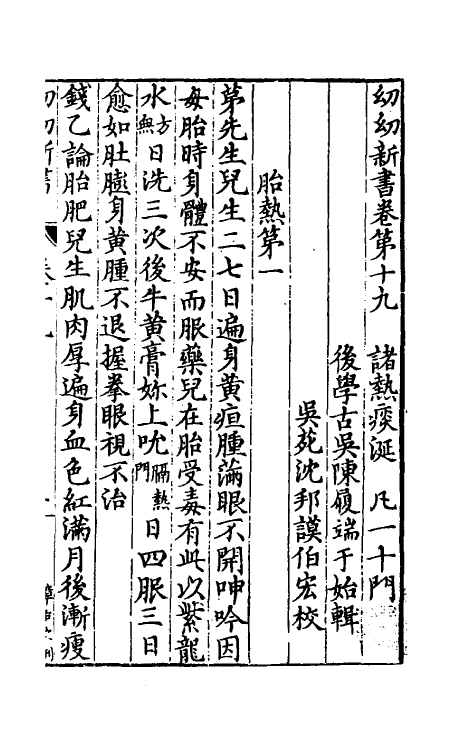 幼幼新書卷第十九　諸熱痰涎　凡一十門
後學古吳陳履端于始輯
吳苑沈邦謨伯宏校
胎熱第一
茅先生兒生二七日遍身黃疸腫滿眼不開呻吟因
母胎時身體不安而服藥兒在胎受毒有此以紫龍
水方無日洗三次後牛黃膏妳上吮膈熱門日四服三日
愈如肚膨身黃腫不退握拳眼視不治
錢乙論胎肥兒生肌肉厚遍身血色紅滿月後漸瘦
幼幼新書　卷十九